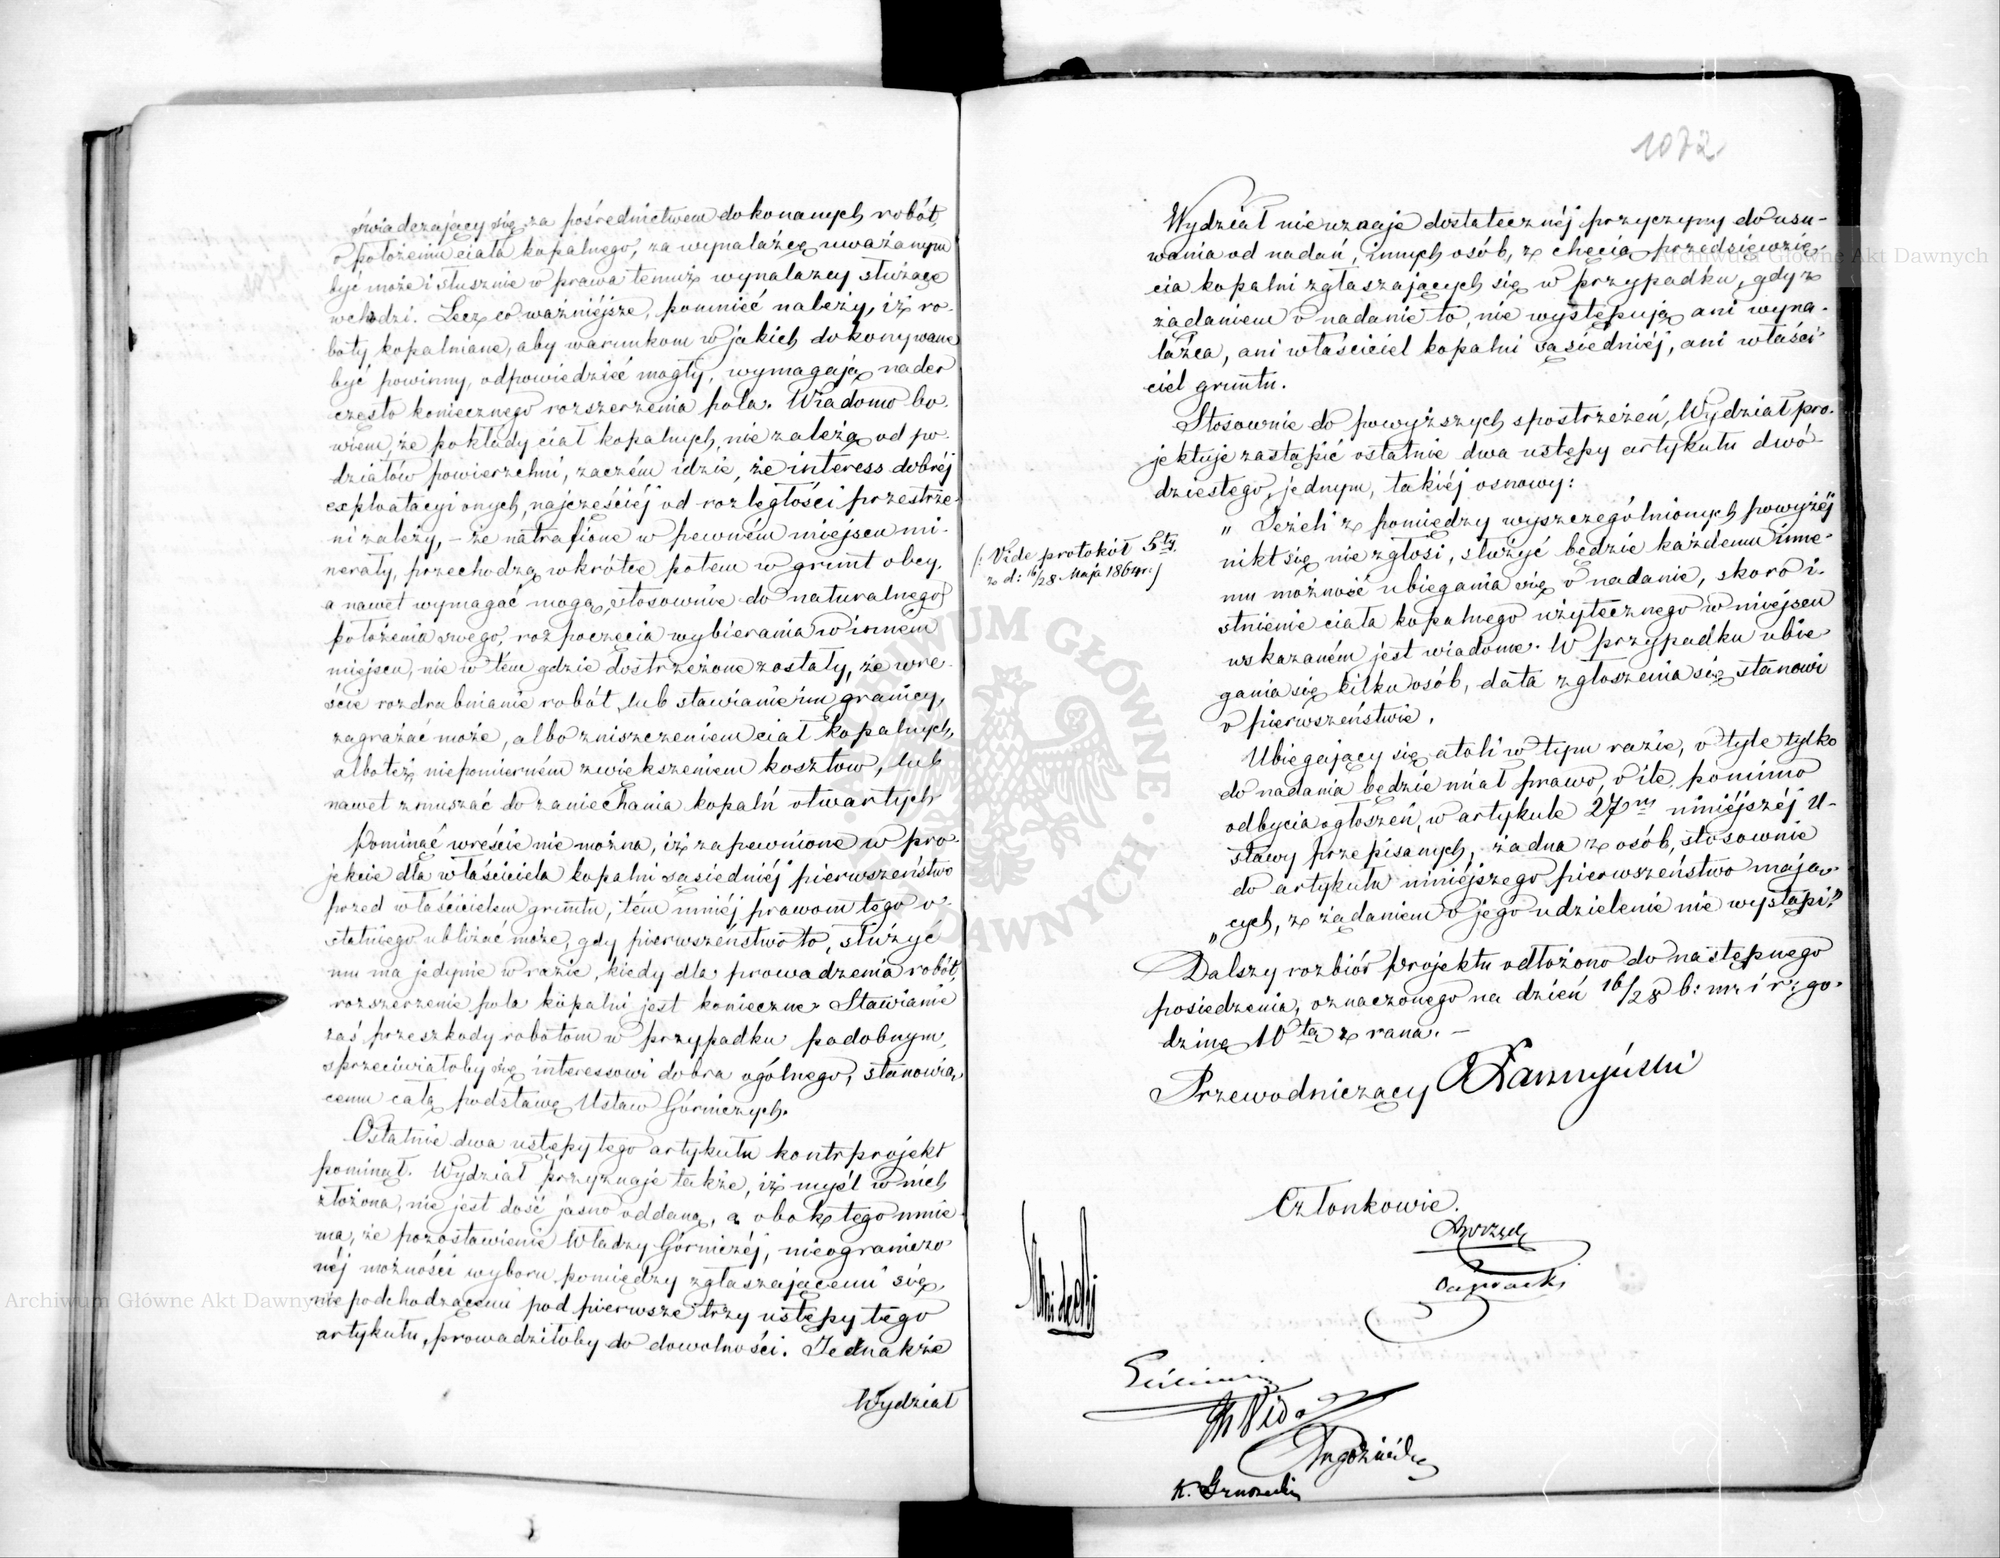 świadczający się za pośrednictwem dokonanych robót,
o położeniu ciała kopalnego, za wynalazcę uważanym
być może i słusznie w prawa temuż wynalazcy służące
wchodzi. Lecz co ważniejsze, pomnieć należy, iż ro-
boty kopalniane, aby warunkom w jakich dokonywane
być powinny, odpowiedzieć mogły, wymagają nader
często koniecznego rozszerzenia pola. Wiadomo bo-
wiem, że pokłady ciał kopalnych, nie zależą od po-
działów powierzchni, zaczém idzie, że interess dobréj
exploatacyi onych, najczęściéj od rozległości przestrze-
ni zależy, – że natrafione w pewném miejscu mi-
nerały, przechodzą wkrótce potem w grunt obcy,
a nawet wymagać mogą, stosownie do naturalnego
położenia swego, rozpoczęcia wybierania w innem
miejscu, nie w tém gdzie dostrzeżone zostały, że wre-
ście rozdrabnianie robót, lub stawianie im granicy,
zagrażać może, albo zniszczeniem ciał kopalnych,
albo też niepomierném zwiększeniem kosztów, lub
nawet zmuszać do zaniechania kopalń otwartych
Pominąć wreście nie można, iż zapewnione w pro-
jekcie dla właściciela kopalni sąsiedniéj pierwszeństwo
przed właścicielem gruntu, tém mniéj prawom tego o-
statniego ubliżać może, gdy pierwszeństwo to, służyć
mu ma jedynie w razie, kiedy dla prowadzenia robót,
rozszerzenie pola kopalni jest konieczne. Stawianie
zaś przeszkody robotom w przypadku podobnym,
sprzeciwiałoby się interessowi dobra ogólnego, stanowią-
cemu całą podstawę Ustaw Górniczych.
Ostatnie dwa ustępy tego artykułu kontrprojekt
pominął. Wydział przyznaje także, iż myśl w nich
złożona, nie jest dość jasno oddaną, a obok tego mnie-
ma, że pozostawienie Władzy Górniczéj, nieograniczo-
néj możności wyboru pomiędzy zgłaszającemi się,
nie podchodzącemi pod pierwsze trzy ustępy tego
artykułu, prowadziłoby do dowolności. Jednakże
Wydział
1072
Wydział nie uznaje dostatecznéj przyczyny do usu-
wania od nadań, innych osób, z chęcią przedsięwzię-
cia kopalni zgłaszających się w przypadku, gdy z
żądaniem o nadanie to, nie występują ani wyna-
lazca, ani właściciel kopalni sąsiedniéj, ani właści-
ciel gruntu.
Stosownie do powyższych spostrzeżeń, Wydział pro-
jektuje zastąpić ostatnie dwa ustępy artykułu dwó-
dziestego, jednym, takiéj osnowy:
„Jeżeli z pomiędzy wyszczególnionych powyżéj
nikt się nie zgłosi, służyć będzie każdemu inne-
mu możność ubiegania się o nadanie, skoro i-
stnienie ciała kopalnego użytecznego w miejscu
wskazaném jest wiadome. W przypadku ubie-
gania się kilku osób, data zgłoszenia się stanowi
o pierwszeństwie.
(: Vide protokół 5ty
z d: 16/28 Maja 1864 r:)
Ubiegający się atoli w tym razie, o tyle tylko
do nadania będzie miał prawo, o ile, pomimo
odbycia ogłoszeń, w artykule 27m niniéjszéj U-
stawy przepisanych, żadna z osób, stosownie
do artykułu niniéjszego pierwszeństwo mają-
„cych, z żądaniem o jego udzielenie nie wystąpi."
Dalszy rozbiór projektu odłożono do następnego
posiedzenia, oznaczonego na dzień 16/28 b: m: i r: go-
dzinę 10tą z rana. –
Przewodniczący
Członkowie.